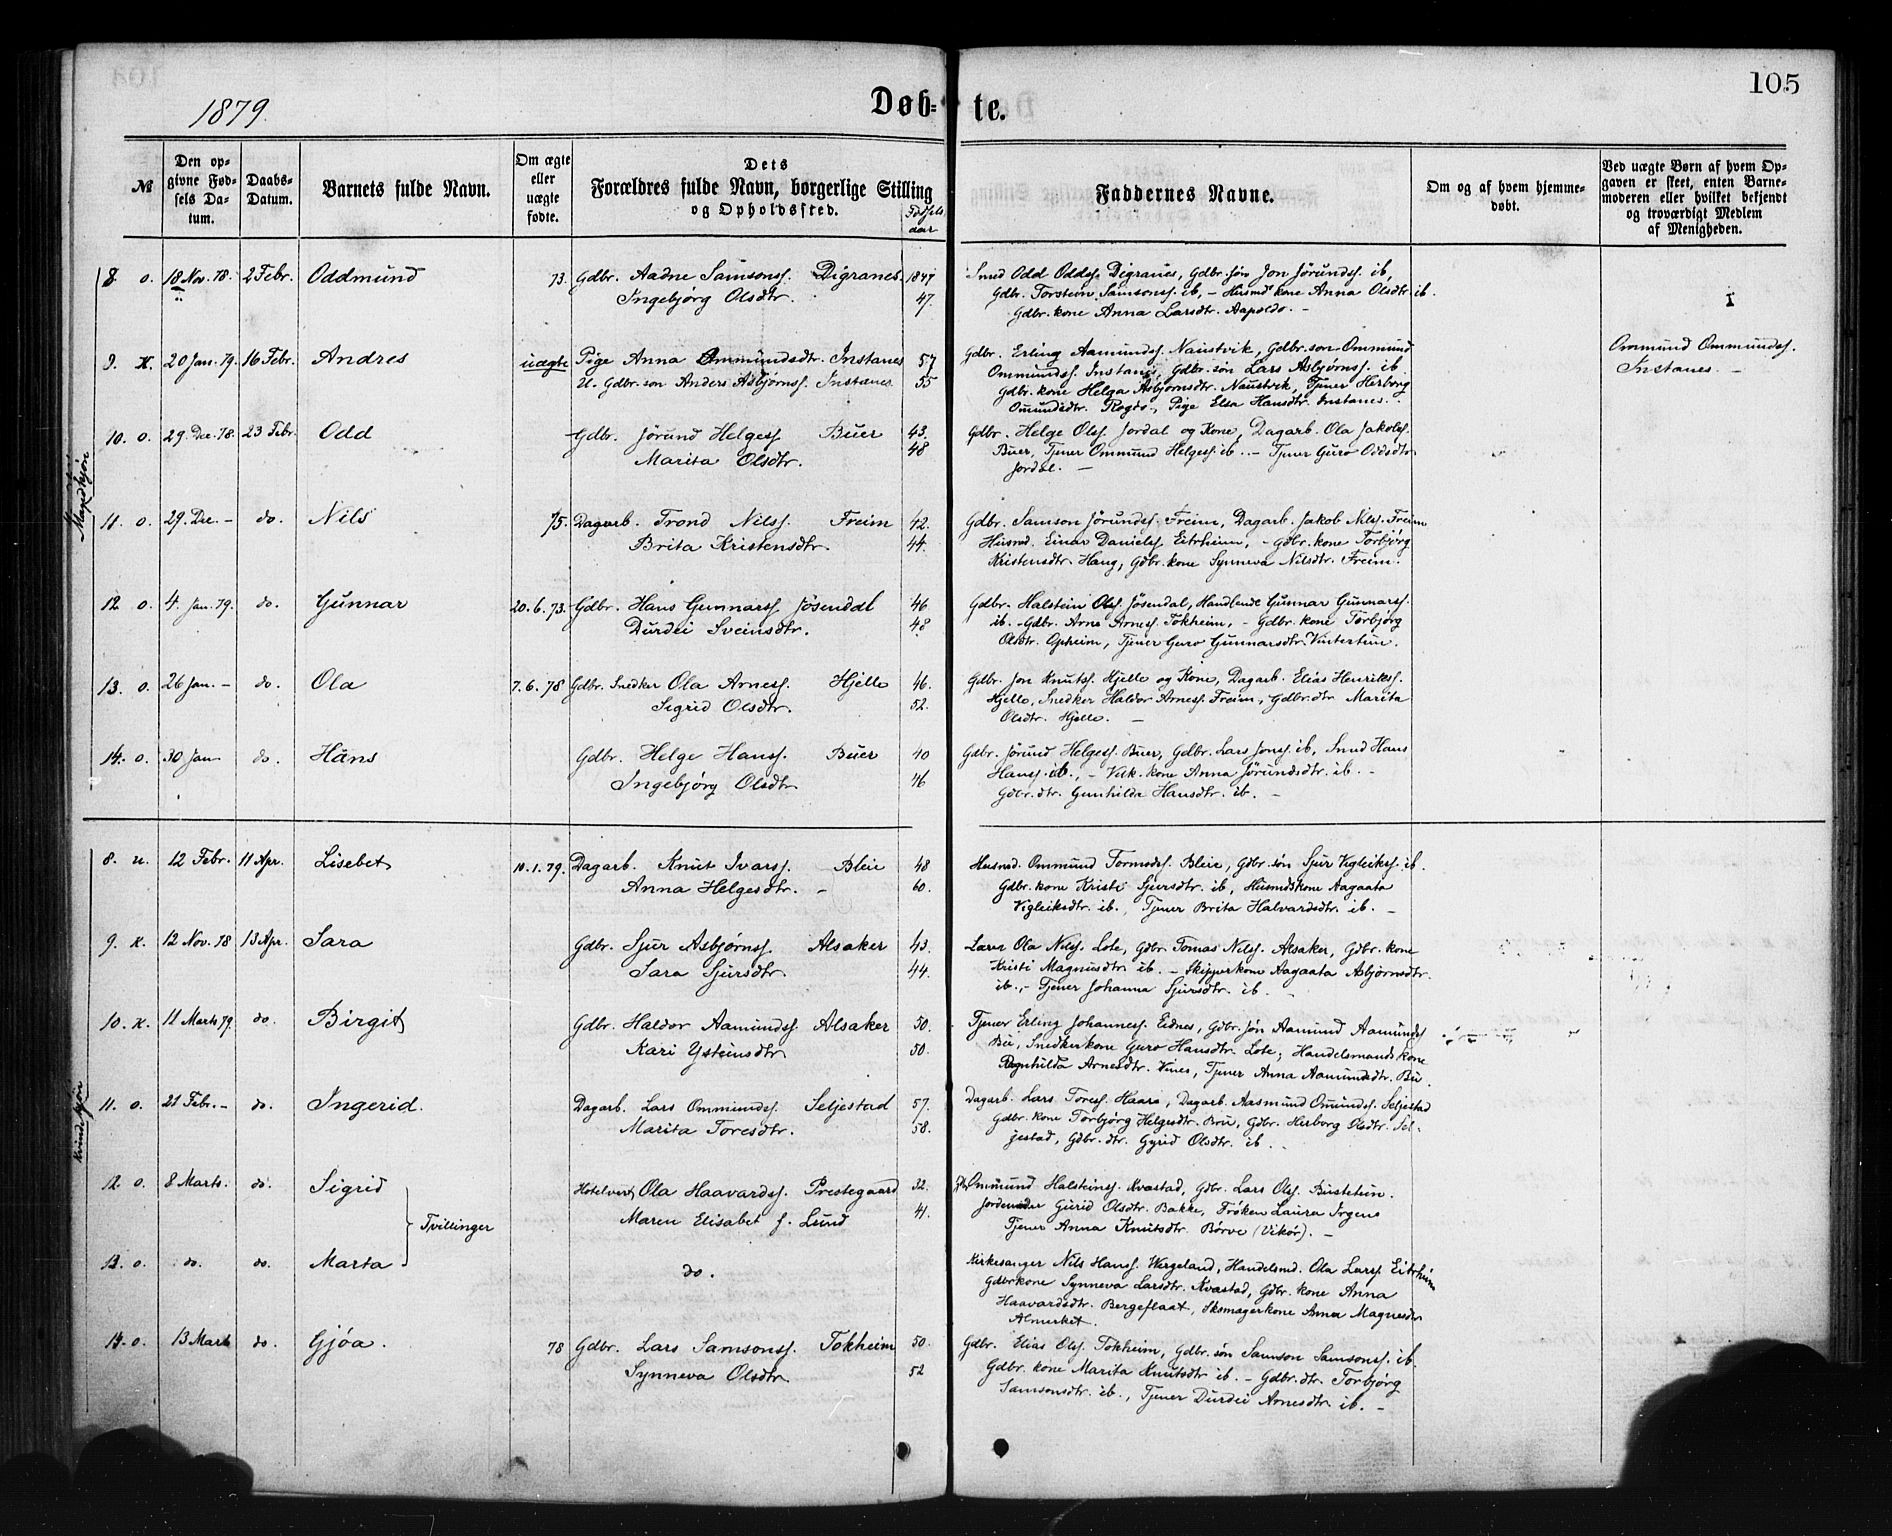 105
1879
Døb= te.
№
Den op-
givne Fød-
sels Da-
tum.
Daabs-
Datum.
Barnets fulde Navn.
Om ægte
eller
uægte
fødte.
Dets
Forældres fulde Navn, borgerlige Stilling
og Opholdssted.
Fødsels
aar
Faddernes Navne.
Om og af hvem hjemme-
døbt.
Ved uægte Børn af hvem Op-
gaven er skeet, enten Barne-
moderen eller hvilket bekjendt
og troværdigt Medlem
af Menigheden.
Mandkjøn
8 o. 18 Nov. 78. 2 Febr. Oddmund 73. Gdbr. Aadne Samsons. Digranes. 1847
Ingebjørg Olsdtr. 47.
Smed Odd Odds. Digranes, Gdbr. søn Jon Jørunds. ib,
Gdbr. Torstein Samsons. ib, – Husmds kone Anna Olsdtr. ib.
Gdbr. kone Anna Larsdtr. Aapoldo. –
9. K. 20 Jan. 79. 16 Febr. Andres uægte Pige Anna Ommundsdtr. Instanes 57
U. Gdbr. søn Anders Asbjørns. Instanes 55
Gdbr. Erling Aamunds. Naustvik, Gdbr. søn Ommund
Ommunds. Instanes, Gdbr. søn Lars Asbjørns. ib
Gdbr. kone Helga Asbjørnsdtr. Naustvik, Tjener Herborg
Omundsdtr. Rogdo., Pige Elsa Hansdtr. Instanes.
Ommund Ommunds.
Instanes. –
10. o. 29. Dec. 78. 23 Febr. Odd Gdbr. Jørund Helges. Buer 43.
Marita Olsdtr. 48
Gdbr. Helge Ols. Jordal og Kone, Dagarb. Ola Jakobs.
Buer, Tjener Ommund Helges. ib. – Tjener Guro Oddsdtr
Jordal. –
11. o. 29. Dec. – do. Nils 75. Dagarb. Trond Nils. Freim 42.
Brita Kristensdtr. 44.
Gdbr. Samson Jørunds. Freim, Dagarb. Jakob Nils. Freim
Husmd. Einar Daniels. Eitrheim, – Gdbr. kone Torbjørg
Kristensdtr. Haug, Gdbr. kone Synneva Nilsdtr. Freim.
12. o. 4. Jan. 79. do. Gunnar 20.6.73. Gdbr. Hans Gunnars. Jøsendal 46
Durdei Sveinsdtr. 48.
Gdbr. Halstein Ols. Jøsendal, Handlende Gunnar Gunnars.
ib. – Gdbr. Arne Arnes. Tokheim, – Gdbr. kone Torbjørg
Olsdtr. Opheim, Tjener Guro Gunnarsdtr. Vintertun.
13. o. 26 Jan. – do. Ola 7.6.78 Gdbr. Snedker Ola Arnes. Hjelle 46.
Sigrid Olsdtr. 52.
Gdbr. Jon Knuts. Hjelle og Kone, Dagarb. Elias Henriks.
Hjelle, Snedker Haldor Arnes. Freim, Gdbr. dtr Marita
Olsdtr. Hjelle. –
14. o. 30 Jan do. Hans Gdbr. Helge Hans. Buer 40
Ingebjørg Olsdtr 46
Gdbr. Jørund Helges. Buer, Gdbr. Lars Jons. ib, Smed Hans
Hans. ib., – kone Anna Jørundsdtr. ib. –
Gdbr. dtr. Gunhilda Hansdtr. ib. –
Kvindekjøn
8. u. 12 Febr. 11 Apr. Lisebet 10.1.79. Dagarb. Knut Ivars. Bleie 48
Anna Helgesdtr. – 60.
Husmd. Ommund Tormods. Bleie, Gdbr. søn Sjur Vigleiks. ib.
Gdbr. kone Kristi Sjursdtr. ib, Husmdskone Aagaata
Vigleiksdtr. ib., Tjener Brita Halvardsdtr. ib. –
9. K. 12 Nov. 78 13 Apr. Sara Gdbr. Sjur Asbjørns. Alsaker 43.
Sara Sjursdtr. 44.
Lærer Ola Nils. Lote, Gdbr Tomas Nils. Alsaker, Gdbr. kone
Kristi Magnusdtr ib. – Skipperkone Aagaata Asbjørnsdtr.
ib., – Tjener Johanna Sjursdtr. ib. –
10. K. 11 Marts 79. do. Birgit Gdbr. Haldor Aamunds. Alsaker 50.
Kari Ysteinsdtr 50.
Tjener Erling Johannes. Eidnes, Gdbr. søn Aamund Aamunds
Bu, Snedkerkone Guro Hansdtr. Lote, Handelsmands kone
Ragnhilda Arnesdtr. Vines, Tjener Anna Aamundsdtr. Bu.
11. o. 21 Febr. – do. Ingerid. Dagarb. Lars Ommunds. Seljestad 57.
Marita Toresdtr. 58.
Dagarb. Lars Tores. Haara, Dagarb. Aasmund Omunds. Seljestad
Gdbr. kone Torbjørg Helgesdtr. Bru, Gdbr. Herborg Olsdtr. Sel-
jestad, Gdbr. dtr. Gyrid Olsdtr. ib. –
12. o. 8 Marts. do. Sigrid Hotelvert Ola Haavards. Prestegaard 32.
Maren Elisabet f. Lund 41.
Tvillinger
Ommund Halsteins. Kvastad, Gdbr. Lars Ols. Bustetun.
Jordemoder Gurid Olsdtr. Bakke, Frøken Laura Irgens
Tjener Anna Knutsdtr. Børve (Vikør). –
13. o. do. do. Marta do.
Kirkesanger Nils Hans. Wergeland, Handelsmd. Ola Lars. Eitrheim
Gdbrkone Synneva Larsdtr. Kvastad, Gdbr. kone Anna
Haavardsdtr. Bergeflaat, Skomagerkone Anna Magnesdtr
Almerket.
14. o. 13 Marts do. Gjøa. 78 Gdbr. Lars Samsons. Tokheim 50.
Synneva Olsdtr. 52
Gdbr. Elias Ols. Tokheim, Gdbr. søn Samson Samsons. ib.
Gdbr. kone Marita Knutsdtr ib. – Gdbr. dtr. Torbjørg
Samsonsdtr. ib., Tjener Durdei Arnesdtr. ib. –